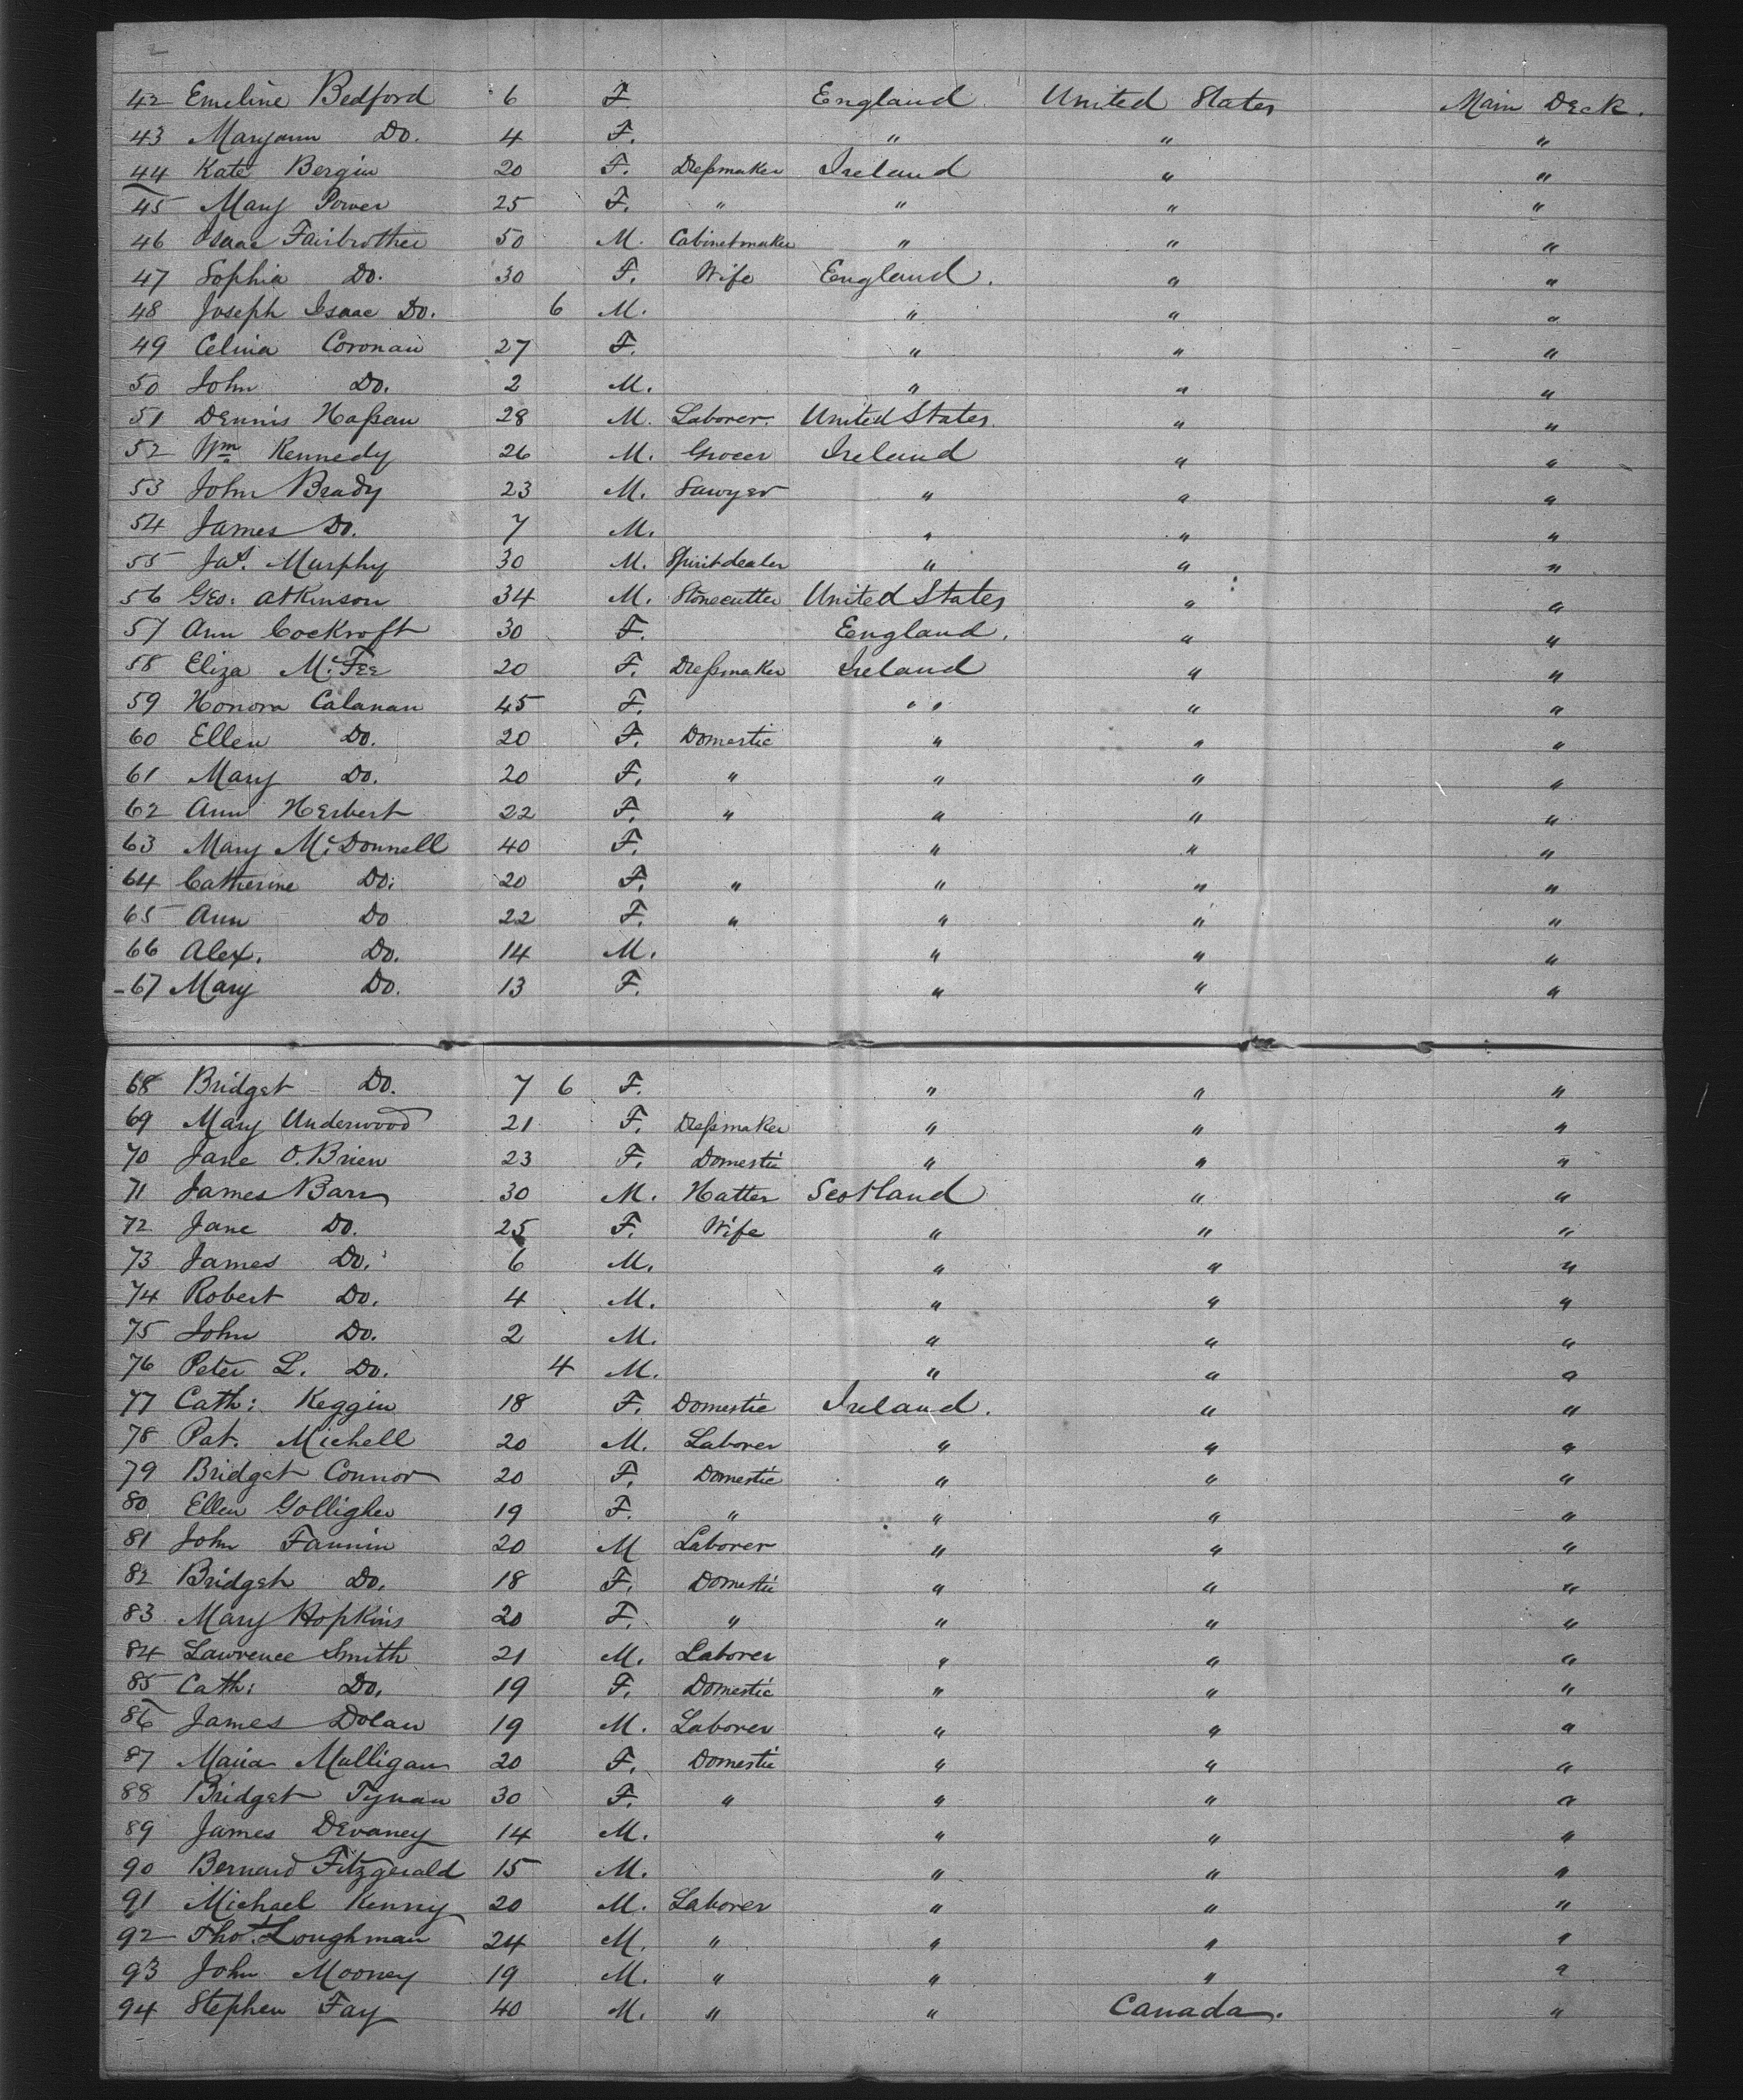 42 Emeline Bedford 6 F. England. United States Main Deck.
43 Maryann Do. 4 F. " " "
44 Kate Bergin 20 F. Dreſsmaker Ireland " "
45 Mary Power 25 F. " " " "
46 Isaac Fairbrother 50 M. Cabinetmaker " " "
47 Sophia Do. 30 F. Wife England. " "
48 Joseph Isaac Do. 6 M. " " "
49 Celina Coronan 27 F. " " "
50 John Do. 2 M. " " "
51 Dennis Haſsan 28 M. Laborer. United States. " "
52 Wm. Kennedy 26 M. Grocer Ireland " "
53 John Brady 23 M. Sawyer " " "
54 James Do. 7 M. " " "
55 Jas. Murphy 30 M. Spiritdealer " " "
56 Geo: Atkinson 34 M. Stonecutter United States " "
57 Ann Cockroft 30 F. England. " "
58 Eliza McFee 20 F. Dreſsmaker Ireland " "
59 Honora Calanan 45 F. " " "
60 Ellen Do. 20 F. Domestic " " "
61 Mary Do. 20 F. " " " "
62 Ann Herbert 22 F. " " " "
63 Mary McDonnell 40 F. " " "
64 Catherine Do: 20 F. " " " "
65 Ann Do 22 F. " " " "
66 Alex. Do. 14 M. " " "
67 Mary Do. 13 F. " " "
68 Bridget Do. 7 6 F. " " "
69 Mary Underwood 21 F. Dreſsmaker " " "
70 Jane O.Brien 23 F. Domestic " " "
71 James Barr 30 M. Hatter Scotland " "
72 Jane Do. 25 F. Wife " " "
73 James Do. 6 M. " " "
74 Robert Do. 4 M. " " "
75 John Do. 2 M. " " "
76 Peter L. Do. 4 M. " " "
77 Cath: Keggin 18 F. Domestic Ireland. " "
78 Pat. Michell 20 M. Laborer " " "
79 Bridget Connor 20 F. Domestic " " "
80 Ellen Golligher 19 F. " " " "
81 John Fannin 20 M Laborer " " "
82 Bridget Do. 18 F. Domestic " " "
83 Mary Hopkins 20 F. " " " "
84 Lawrence Smith 21 M. Laborer " " "
85 Cath: Do. 19 F. Domestic " " "
86 James Dolan 19 M. Laborer " " "
87 Maria Mulligan 20 F. Domestic " " "
88 Bridget Tynan 30 F. " " " "
89 James Devaney 14 M. " " "
90 Bernard Fitzgerald 15 M. " " "
91 Michael Kenny 20 M. Laborer " " "
92 Thos. Loughman 24 M. " " " "
93 John Mooney 19 M. " " " "
94 Stephen Fay 40 M. " " Canada. "